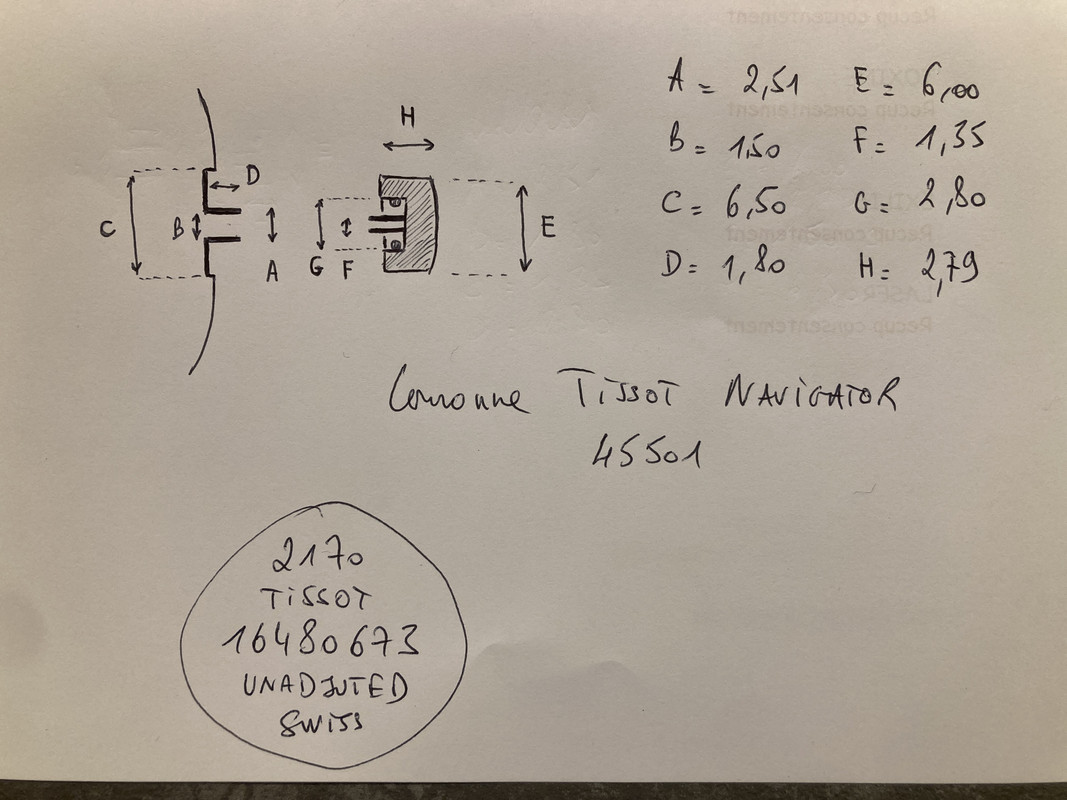 H
D
C
B
A
G
F
E
A = 2,51 E = 6,00
B = 1,50 F = 1,35
C = 6,50 G = 2,80
D = 1,80 H = 2,79
Couronne TissoT NAViGATOR
45501
2170
TiSSOT
16480673
UNADJUTED
SWiSS
Recup consentement
Recup consentement
Recup consentement
LASER
Recup consentement